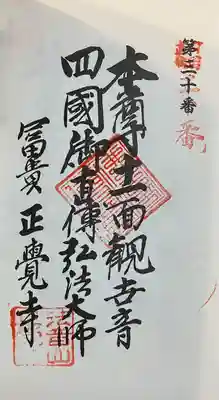 第三十番
本尊十一面観世音
四國御直傳弘法大師
冨貴 正覺寺